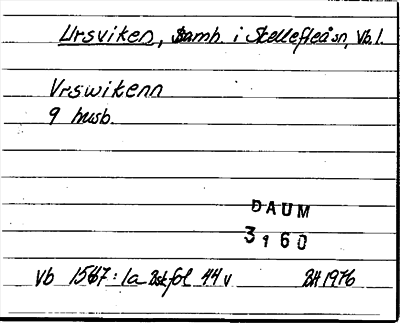 Ursviken, samh. i Skellefteå sn, Vb. l.
Vrswikenn
9 husb.
DAUM
3160
Vb 1567: 1a Bskfol 44 v BH 1976